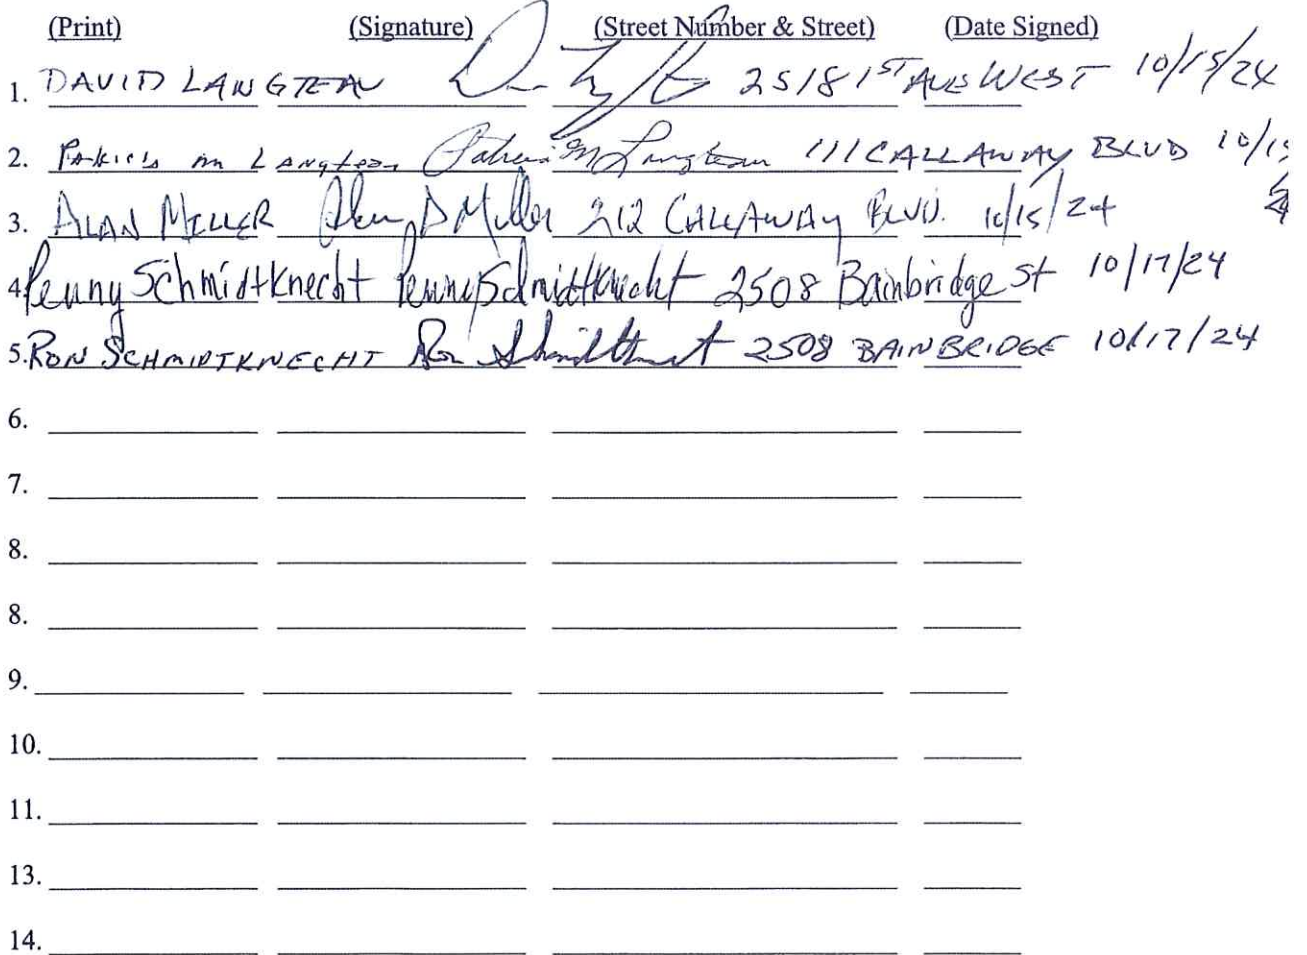 (Print) (Signature) (Street Number & Street) (Date Signed)
1. DAVID LANGTEAU 2518 1ST AVE WEST 10/15/24
2. Patricia M Langteau Patricia M Langteau 111 CALLAWAY BLVD 10/15
24
3. ALAN MILLER Alan D Miller 212 CALLAWAY BLVD. 10/15/24
4. Penny Schmidtknecht Penny Schmidtknecht 2508 Bainbridge St 10/17/24
5. RON SCHMIDTKNECHT Ron Schmidtknecht 2508 BAINBRIDGE 10/17/24
6.
7.
8.
8.
9.
10.
11.
13.
14.